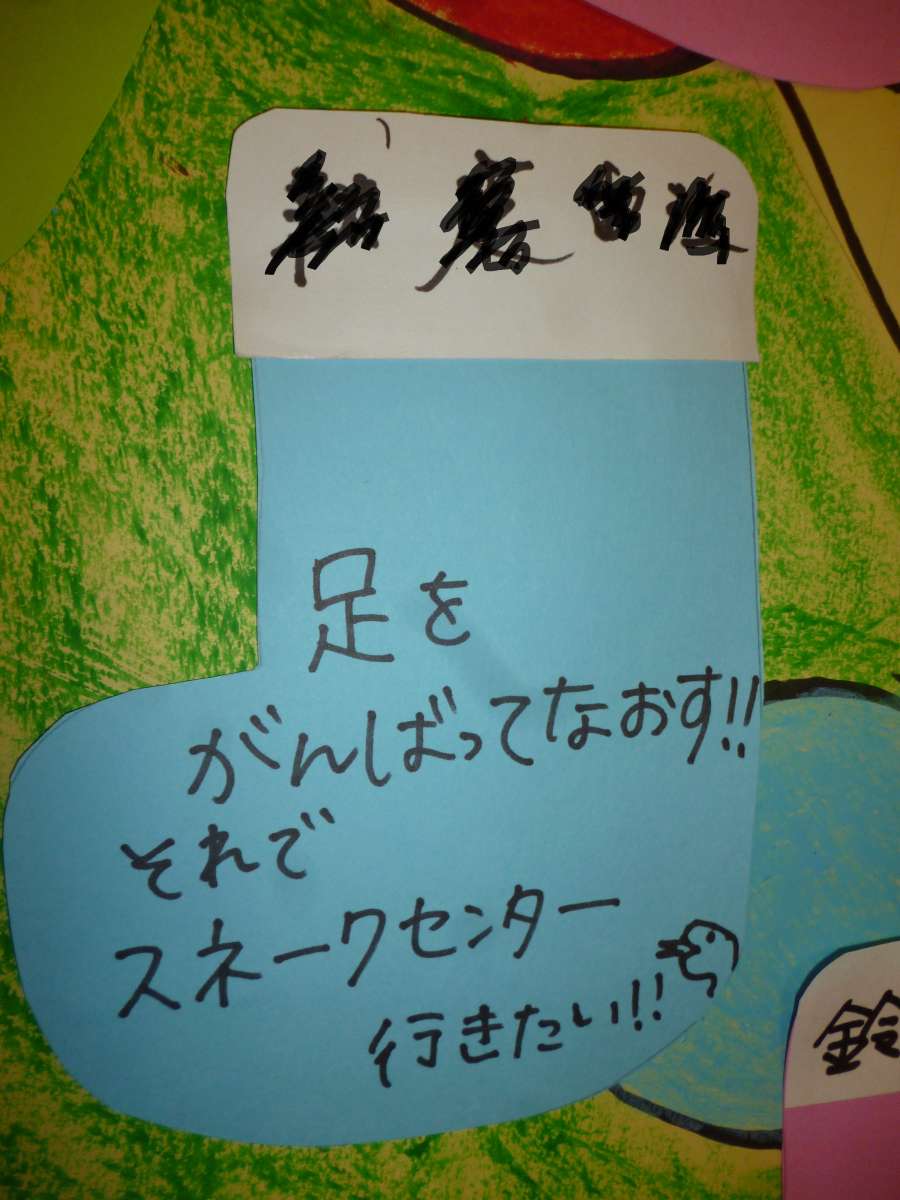 足を
がんばってなおす!!
それで
スネークセンター
行きたい!!
鈴